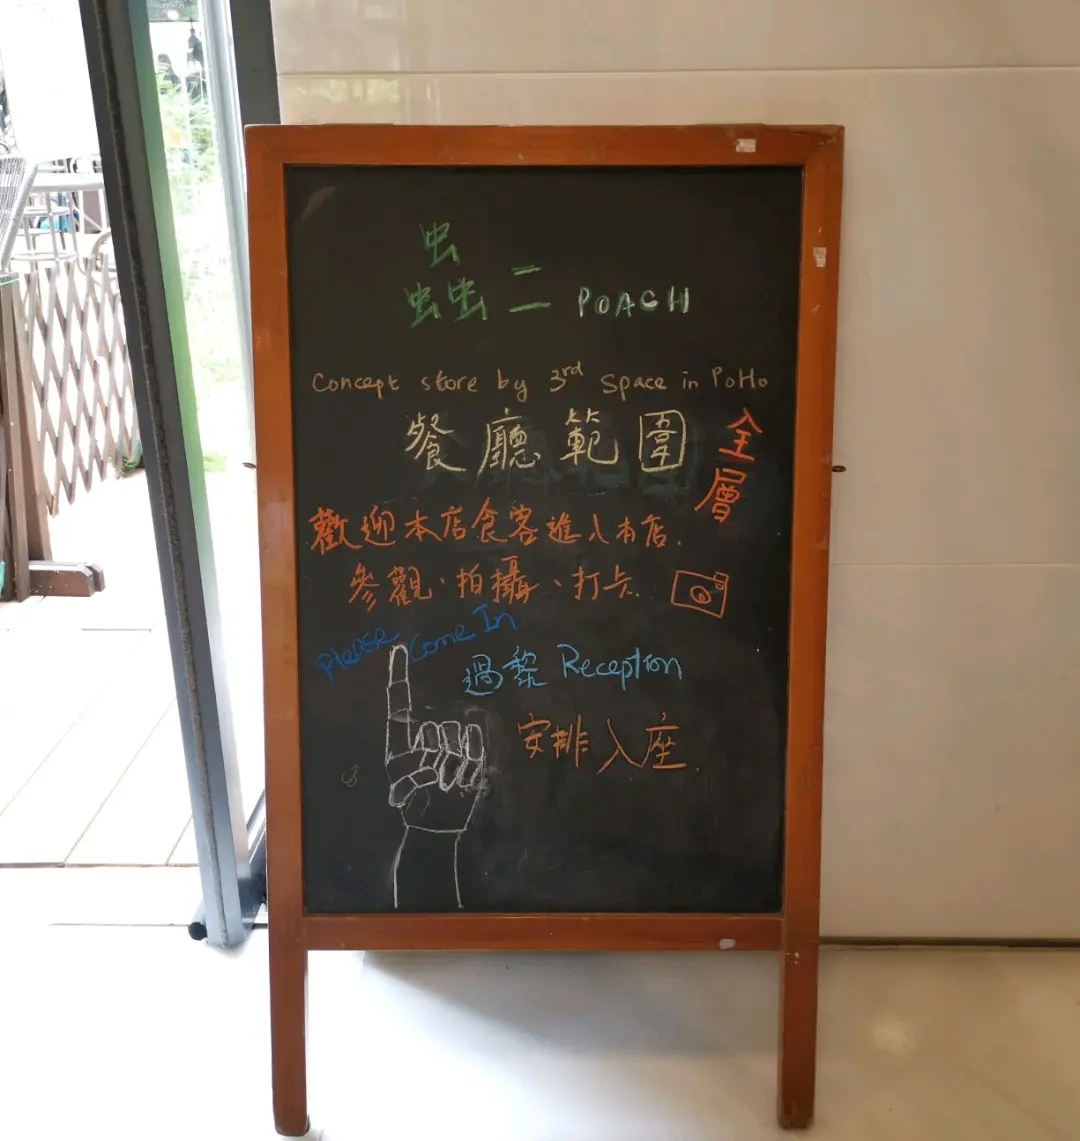 蟲二 POACH
Concept store by 3rd Space in PoHo
餐廳範圍 全層
歡迎本店食客進入本店.
參觀、拍攝、打卡.
Please Come In
過黎 Reception
安排入座.